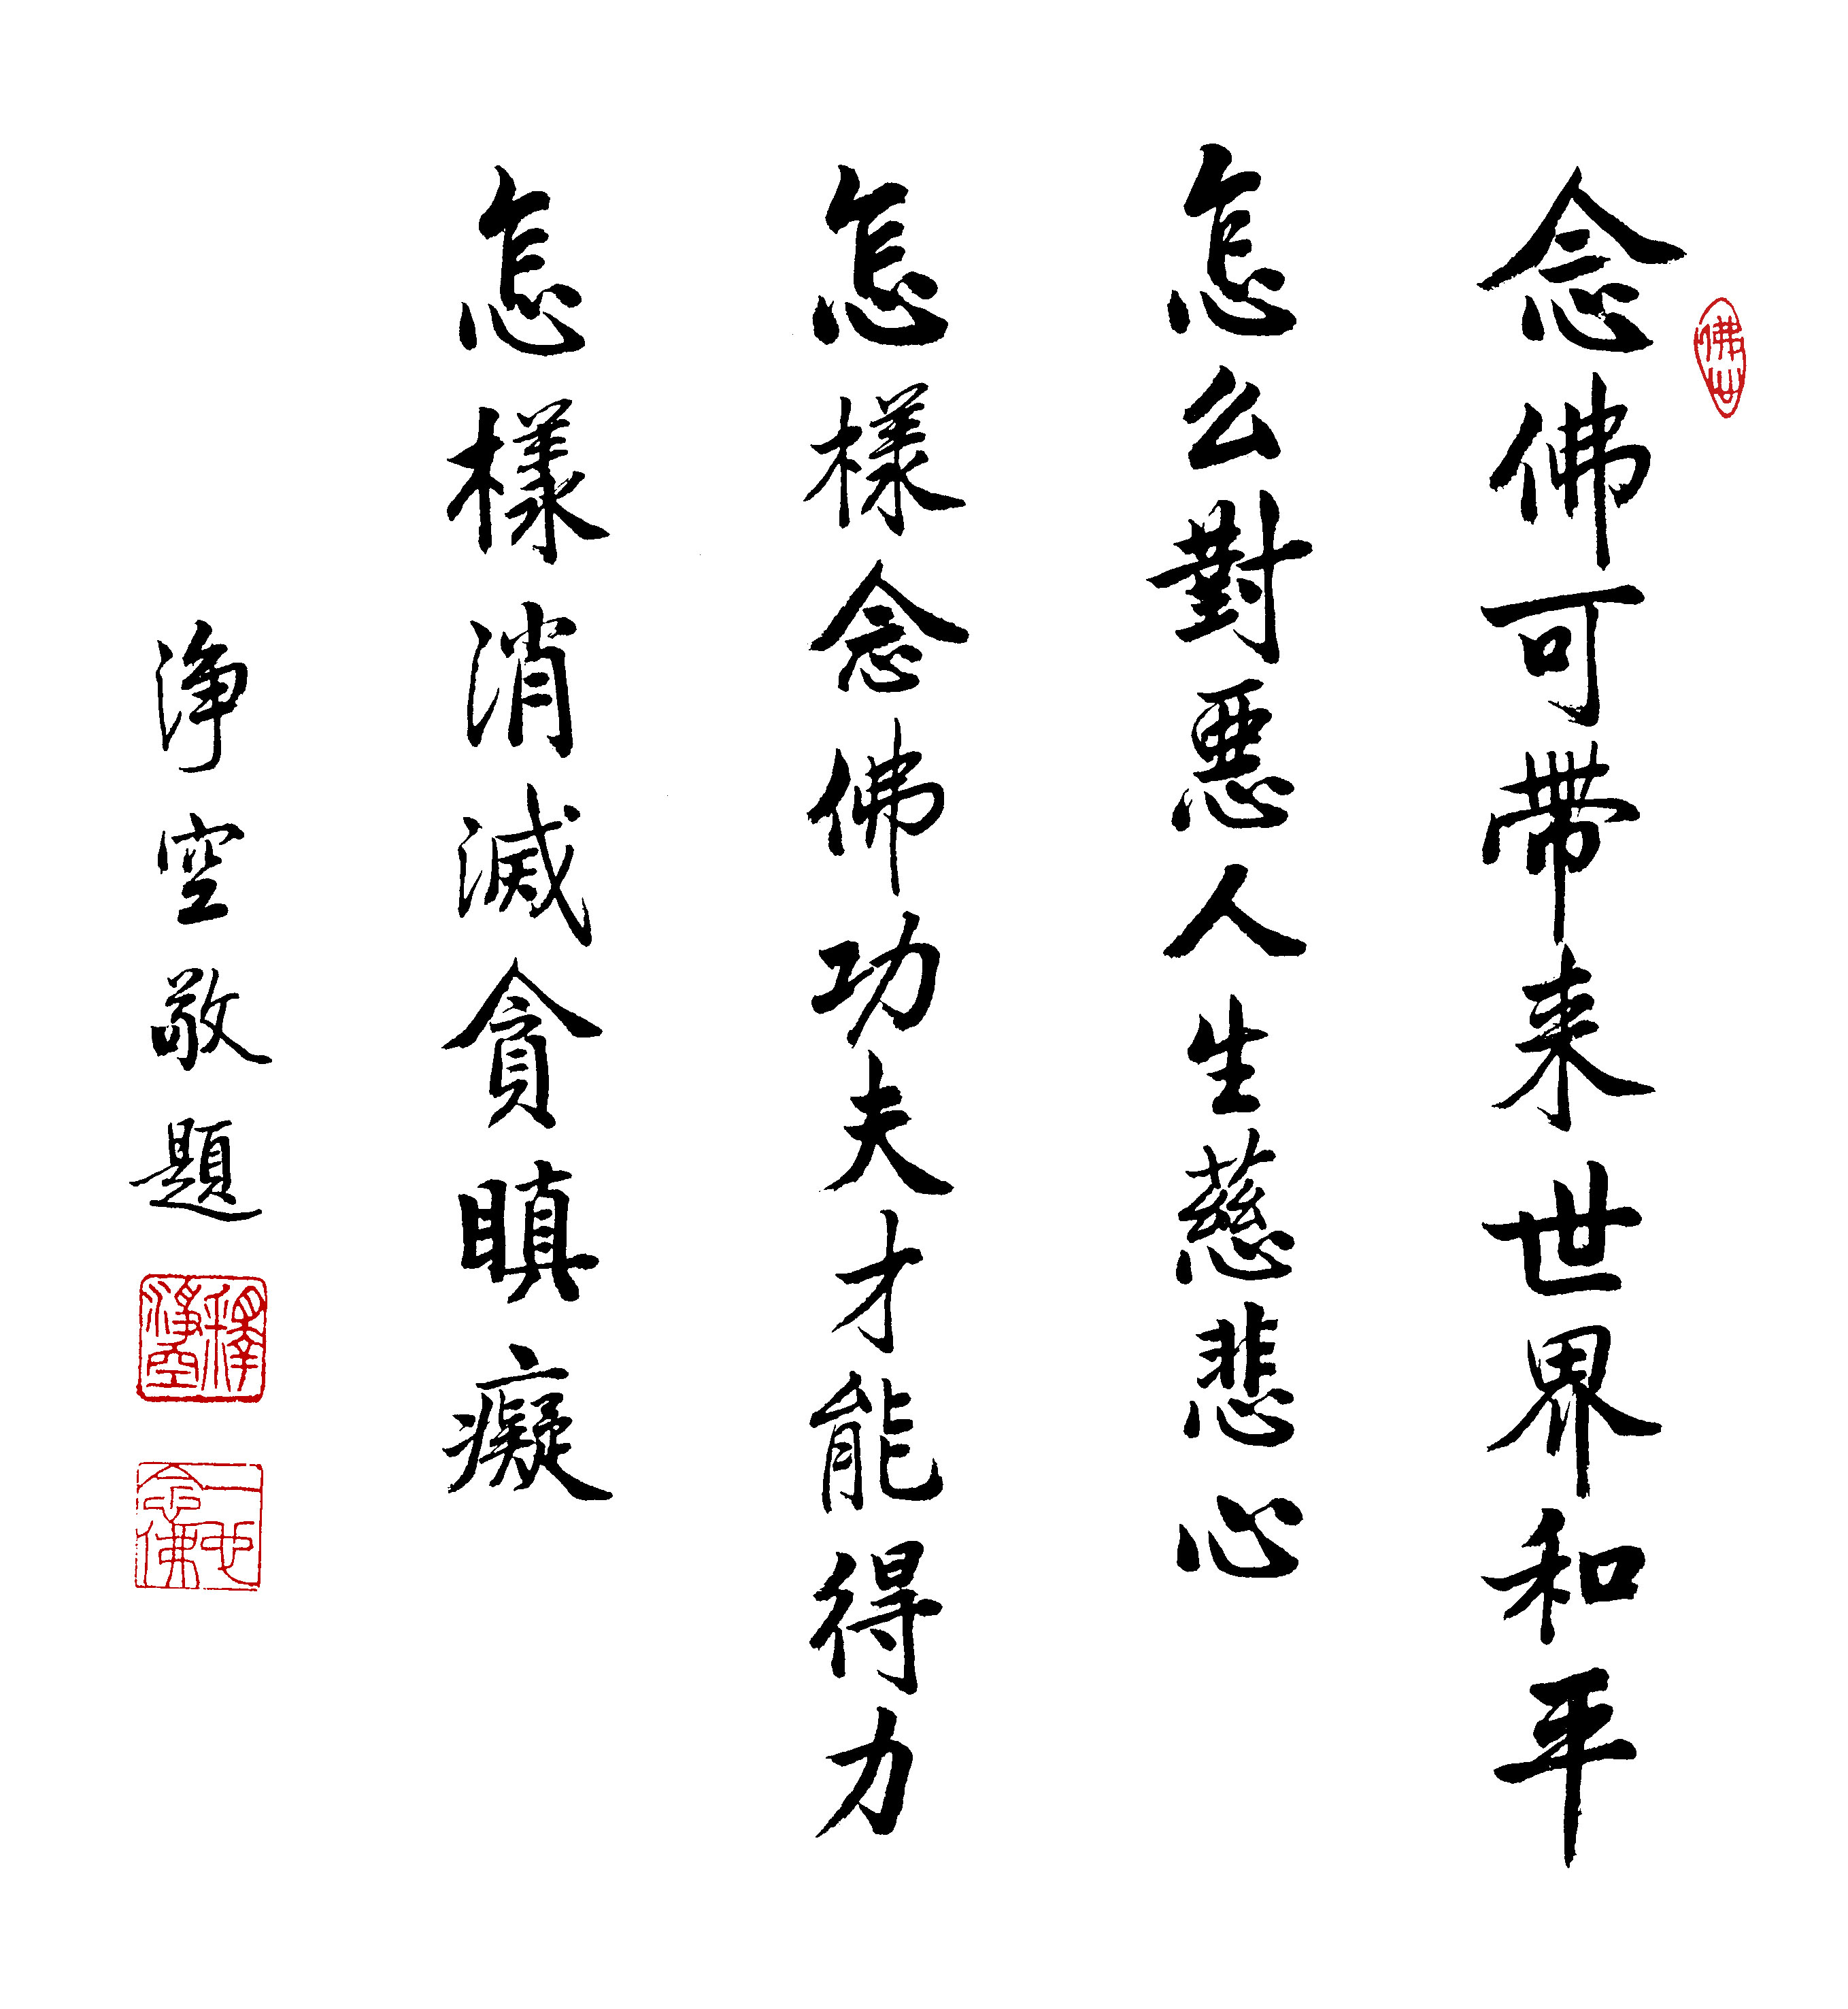 念佛可帶来世界和平
怎么對惡人生慈悲心
怎樣念佛功夫才能得力
怎樣消滅貪瞋癡
淨空敬題
釋淨空
一心念佛